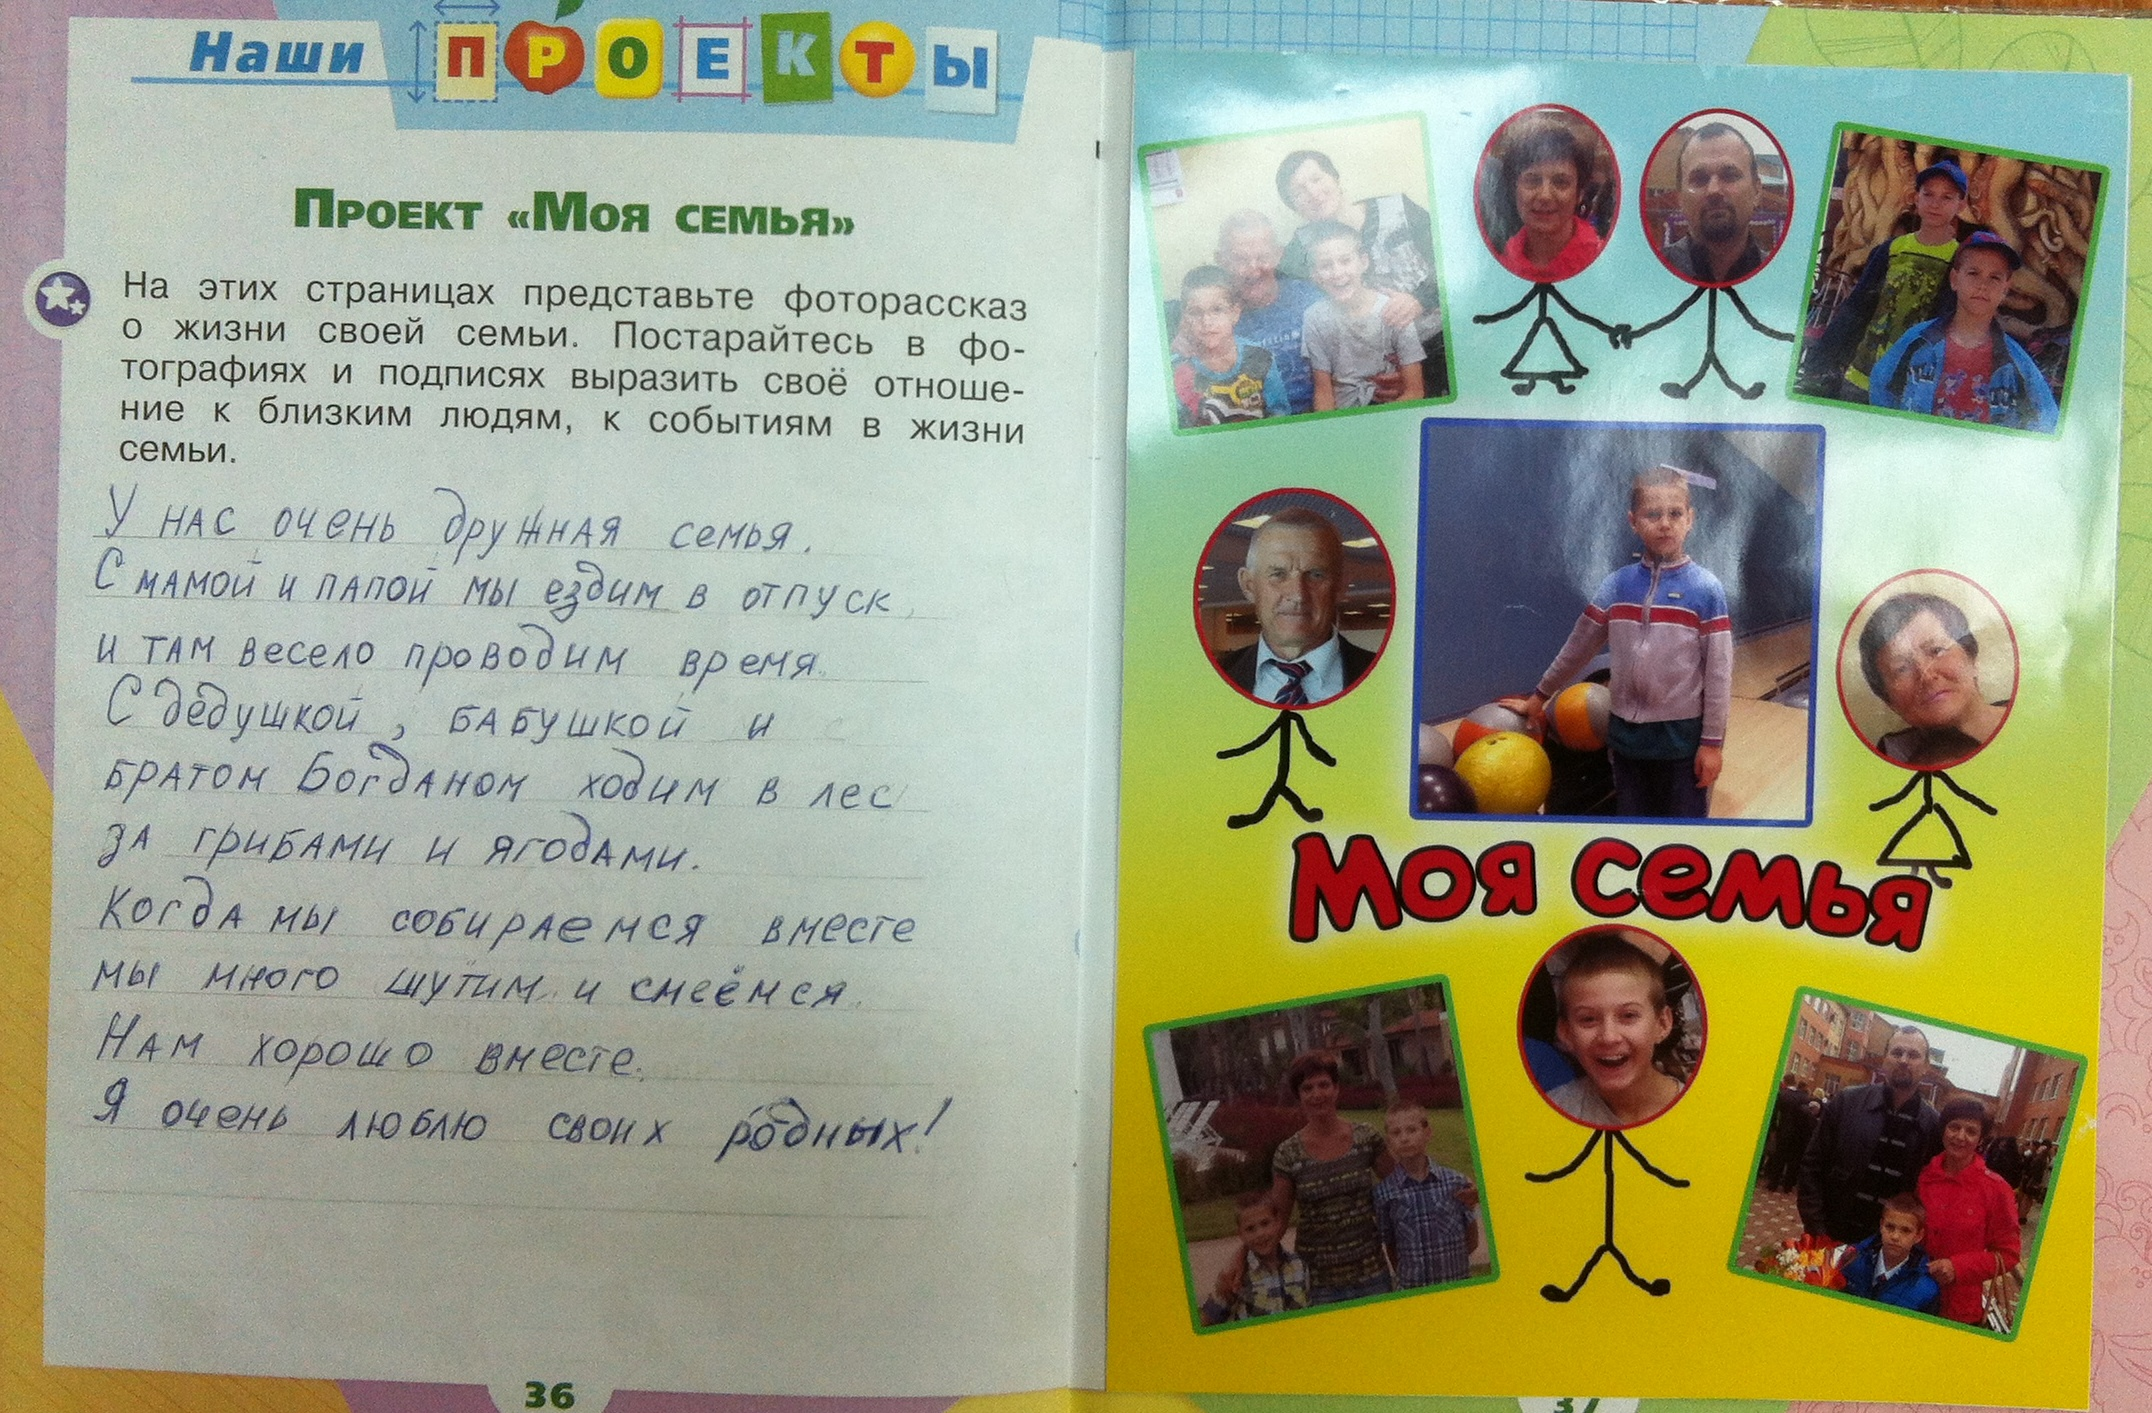 Наши ПРОЕКТЫ
Проект «Моя семья»
На этих страницах представьте фоторассказ
о жизни своей семьи. Постарайтесь в фо-
тографиях и подписях выразить своё отноше-
ние к близким людям, к событиям в жизни
семьи.
У нас очень дружная семья.
С мамой и папой мы ездим в отпуск,
и там весело проводим время.
С дедушкой, бабушкой и с
братом Богданом ходим в лес
за грибами и ягодами.
Когда мы собираемся вместе
мы много шутим и смеёмся.
Нам хорошо вместе.
Я очень люблю своих родных!
36
Моя семья
37